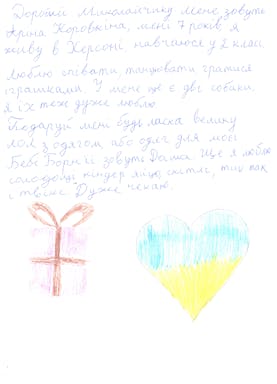 Дорогий Миколайчику мене зовуть
Аріна Коровкіна, мені 7 років, я
живу в Херсоні, навчаюся у 2 класі.
Люблю співати, танцювати гратися
іграшками. У мене ще є дві собаки,
я їх теж дуже люблю.
Подаруй мені будь ласка велику
лол з одягом або одяг для моєї
Бебі Борн її зовуть Даша. Ще я люблю
солодощі кіндер яйцо скітлс,
і твікс. Дуже чекаю.